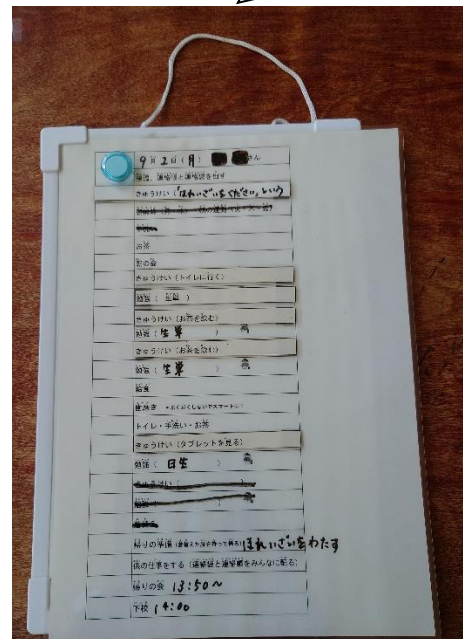 9月2日(月) さん
連絡帳と連絡袋を出す
きゅうけい(「ほれいざいをください」という)
お茶
朝の会
きゅうけい(トイレに行く)
勉強( 生単 )
きゅうけい(お茶を飲む)
勉強( 生単 )
きゅうけい(お茶を飲む)
勉強( 生単 )
給食
歯みがき
トイレ・手洗い・お茶
きゅうけい(タブレットを見る)
勉強( 日生 )
帰りの準備 ほれいざいをわたす
係の仕事をする(連絡袋と連絡帳をみんなに配る)
帰りの会 13:50~
下校 14:00